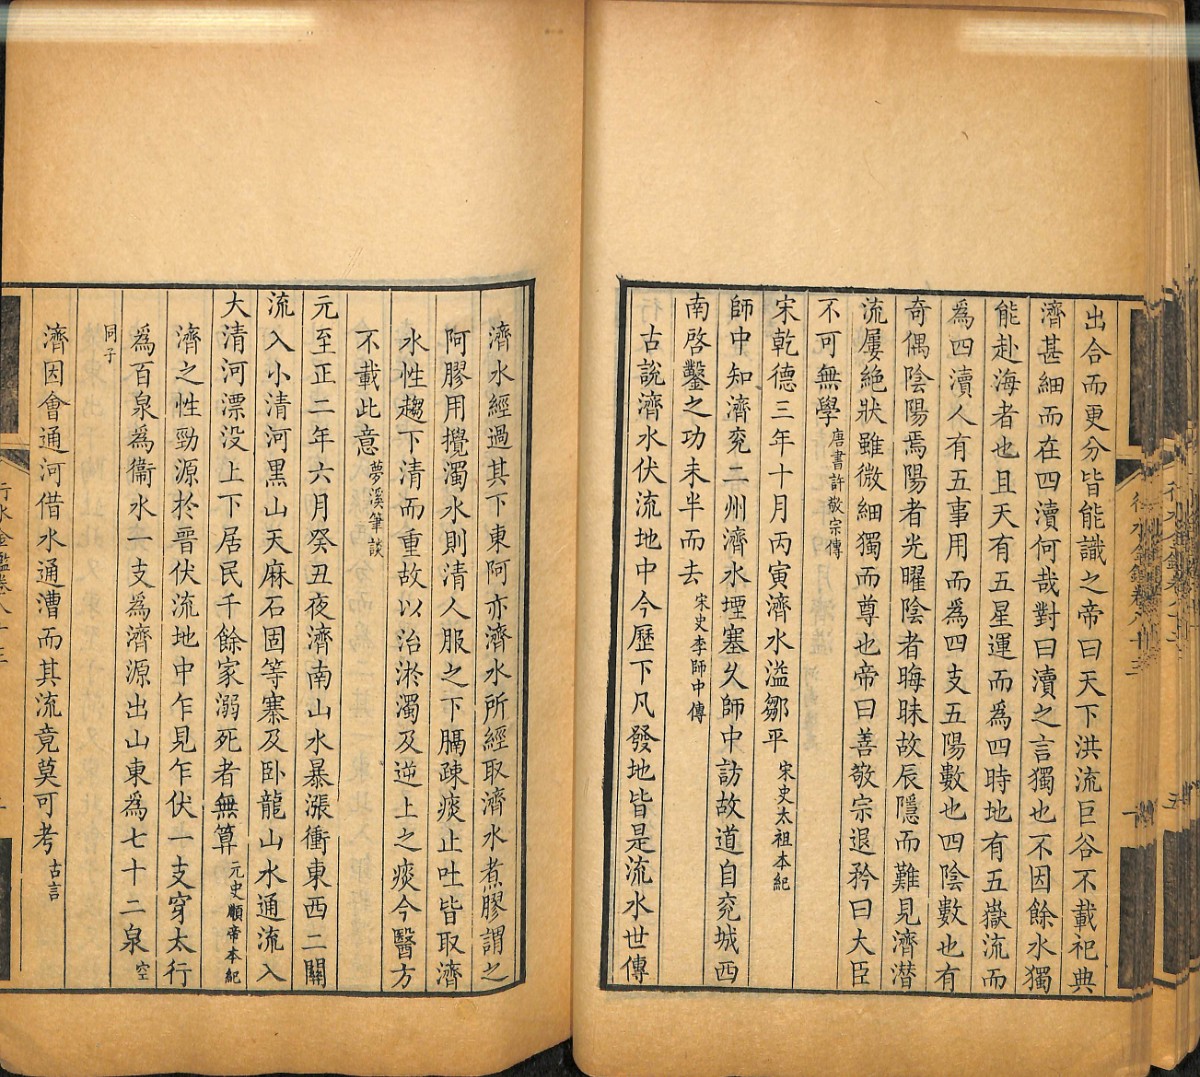 出合而更分皆能識之帝曰天下洪流巨谷不載祀典
濟甚細而在四瀆何哉對曰瀆之言獨也不因餘水獨
能赴海者也且天有五星運而為四時地有五嶽流而
為四瀆人有五事用而為四支五陽數也四陰數也有
奇偶陰陽焉陽者光曜陰者晦昧故辰隱而難見濟潛
流屢絶狀雖微細獨而尊也帝曰善敬宗退矜曰大臣
不可無學唐書許敬宗傳
宋乾德三年十月丙寅濟水溢鄒平宋史太祖本紀
師中知濟兖二州濟水堙塞久師中訪故道自兖城西
南啓鑿之功未半而去宋史李師中傳
古說濟水伏流地中今歷下凡發地皆是流水世傳
濟水經過其下東阿亦濟水所經取濟水煮膠謂之
阿膠用攪濁水則清人服之下膈疎痰止吐皆取濟
水性趨下清而重故以治淤濁及逆上之痰今醫方
不載此意夢溪筆談
元至正二年六月癸丑夜濟南山水暴漲衝東西二關
流入小清河黑山天麻石固等寨及卧龍山水通流入
大清河漂没上下居民千餘家溺死者無算元史順帝本紀
濟之性勁源於晉伏流地中乍見乍伏一支穿太行
為百泉為衞水一支為濟源出山東為七十二泉空
同子
濟因會通河借水通漕而其流竟莫可考古言
行水金鑑卷八十三